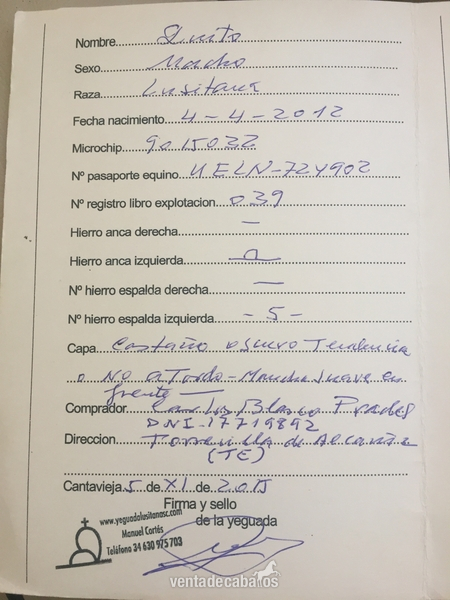 Nombre
Sexo Macho
Raza Lusitana
Fecha nacimiento 4-4-2012
Microchip 9015032
Nº pasaporte equino UELN-724902
Nº registro libro explotacion 039
Hierro anca derecha —
Hierro anca izquierda
Nº hierro espalda derecha —
Nº hierro espalda izquierda -5-
Capa Castaño oscuro Tendencia
o No a Tordo-Mancha suave en
frente —
Comprador Carlos Blasco Prades
DNI-17719892
Direccion Torrevilla de Alcañiz
(TE)
Cantavieja 5 de XI de 2015
Firma y sello
de la yeguada
www.yeguadalusitanasc.com
Manuel Cortés
Teléfono 34 630 975 703
ventadecaballos